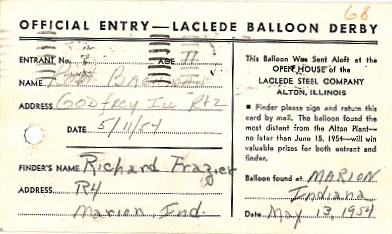 68
OFFICIAL ENTRY—LACLEDE BALLOON DERBY
ENTRANT No. AGE 11
NAME
ADDRESS Godfrey Ill Rt 2
DATE 5/11/54
FINDER'S NAME Richard Frazier
ADDRESS R4
Marion, Ind.
This Balloon Was Sent Aloft at the
OPEN HOUSE of the
LACLEDE STEEL COMPANY
ALTON, ILLINOIS
■ Finder please sign and return this
card by mail. The balloon found the
most distant from the Alton Plant—
no later than June 15, 1954—will win
valuable prizes for both entrant and
finder.
Balloon found at MARION
Indiana
Date May 13, 1954